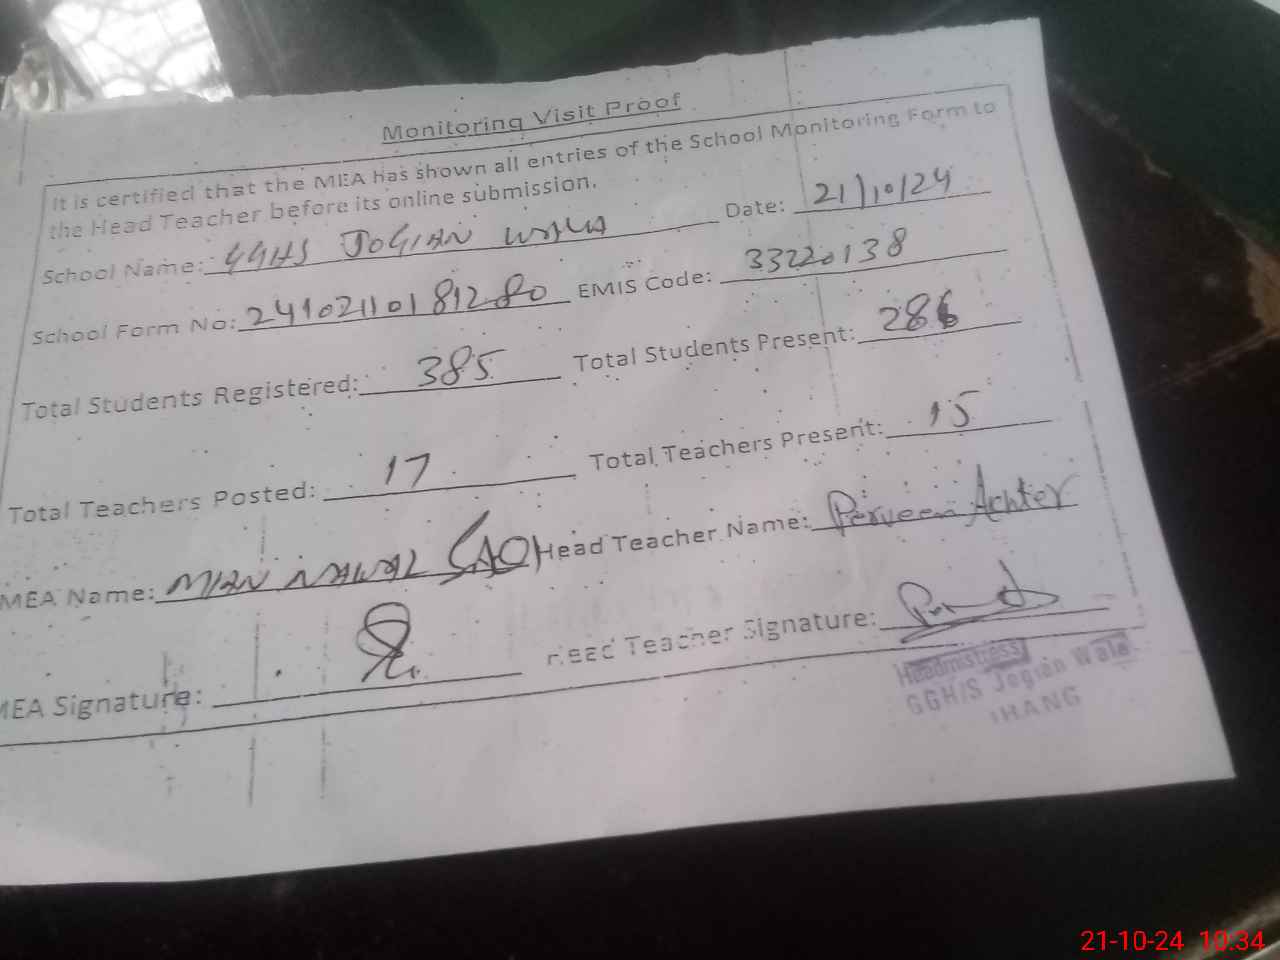 Monitoring Visit Proof
It is certified that the MEA has shown all entries of the School Monitoring Form to
the Head Teacher before its online submission.
School Name: GGHS JOGIAN WALA Date: 21/10/24
School Form No: 24102110181280 EMIS Code: 33220138
Total Students Registered: 385 Total Students Present: 286
Total Teachers Posted: 17 Total Teachers Present: 15
MEA Name: MIAN NAWAL (AO) Head Teacher Name: Perveen Achter
MEA Signature: Head Teacher Signature:
Headmistress
GGH/S Jogian Wala
JHANG
21-10-24 10:34